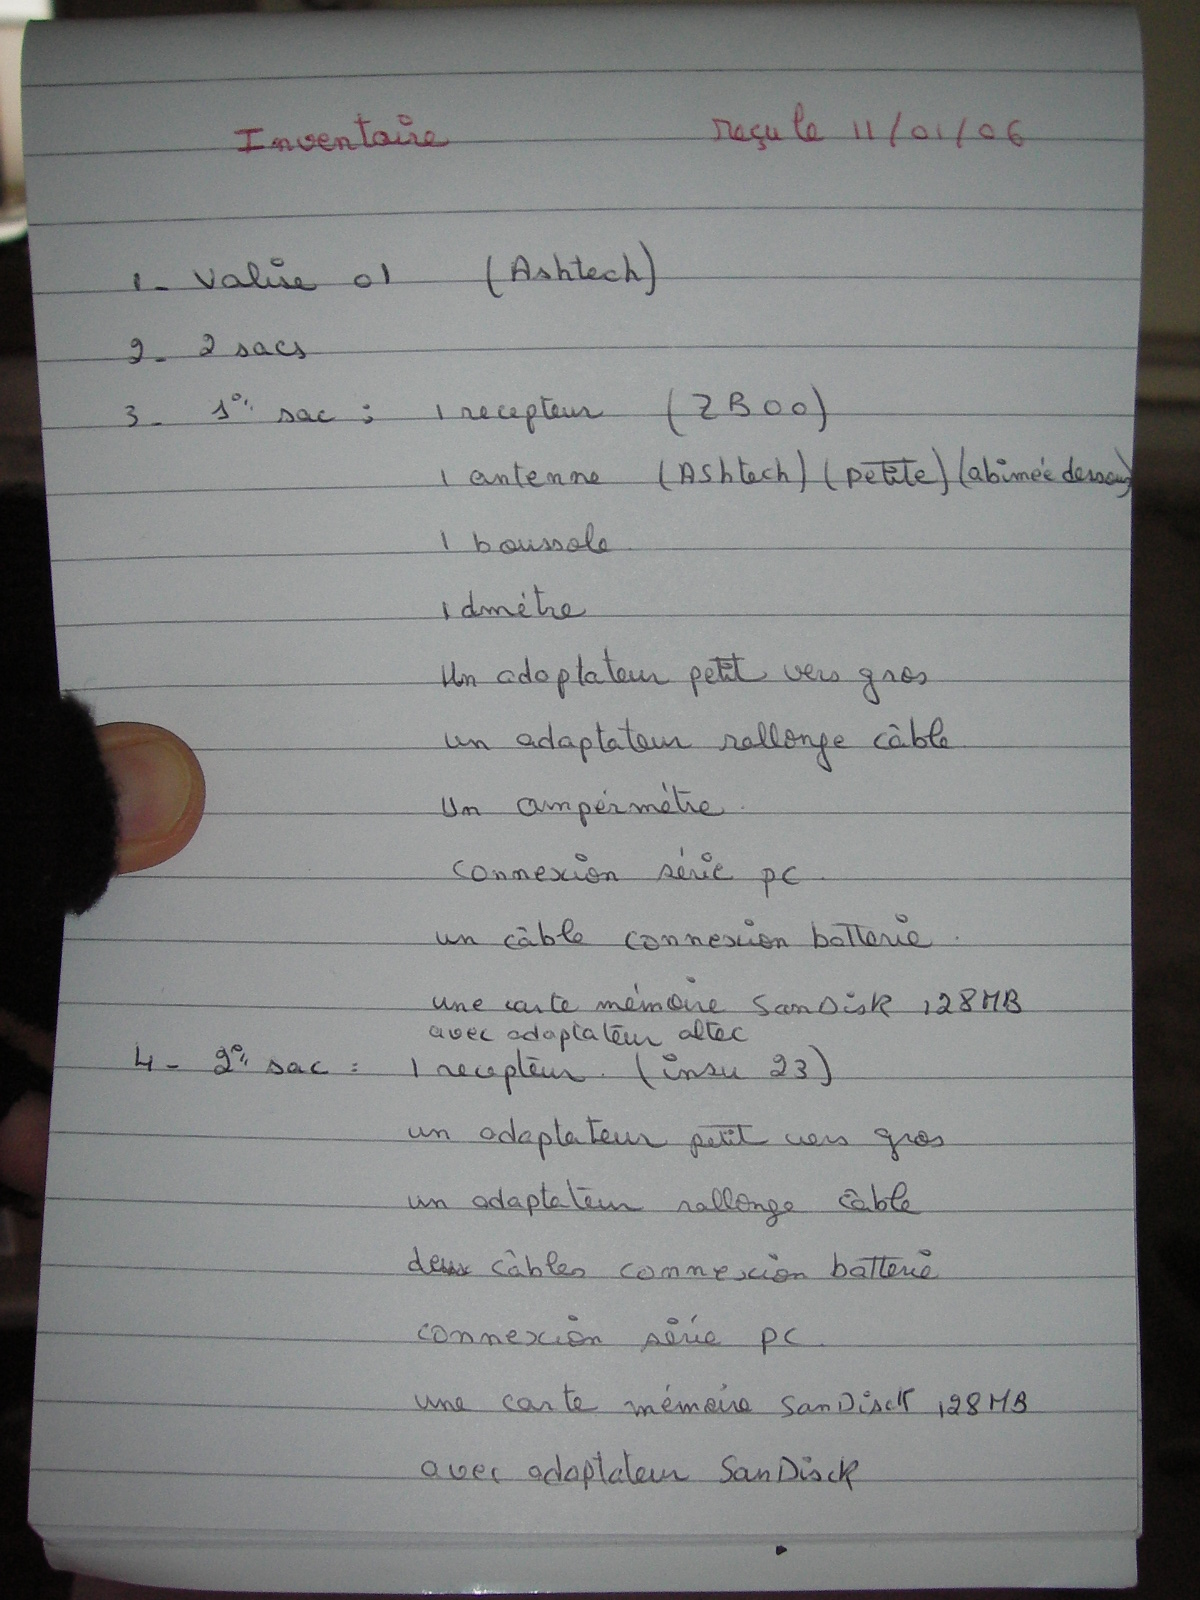 Inventaire reçu le 11/01/06
1- Valise 01 (Ashtech)
2- 2 sacs
3- 1er sac : 1 recepteur (ZB00)
1 antenne (AShtech) (petite) (abimée dessous)
1 boussole
1 dmètre
Un adaptateur petit vers gros
un adaptateur rallonge câble
Un ampérmètre
connexion série pc
un câble connexion batterie
une carte mémoire SanDisk 128MB
avec adaptateur altec
4- 2e sac : 1 recepteur (insu 23)
un adaptateur petit vers gros
un adaptateur rallonge câble
deux câbles connexion batterie
connexion série pc
une carte mémoire SanDisck 128MB
avec adaptateur SanDisck